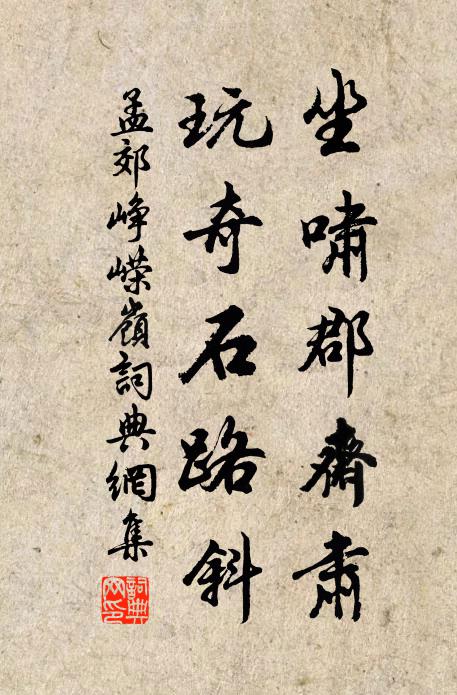 坐嘯郡齋肅
玩奇石路斜
孟郊崢嶸嶺詞典網集
詞典
网印